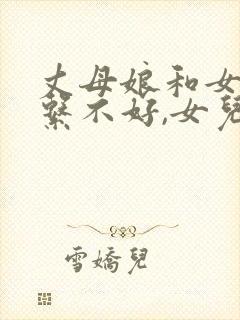 丈母娘和女
繫不好,女兒
雪嬌兒